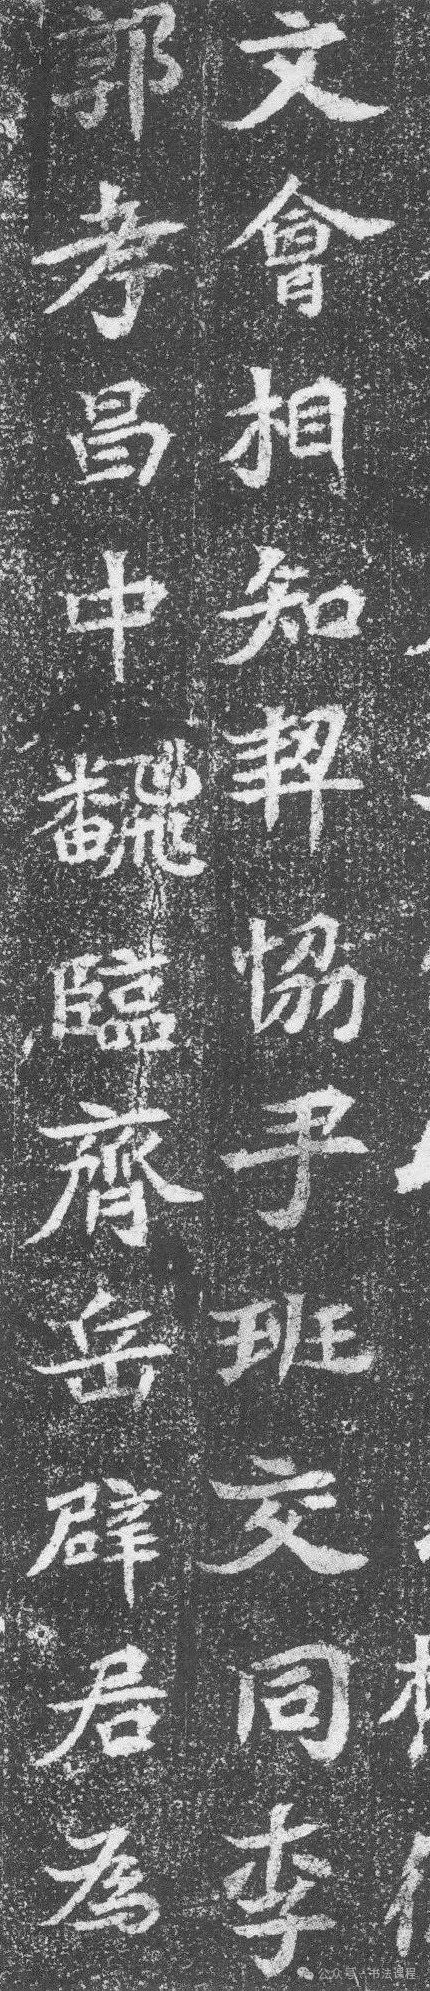 文會相知契協尹班交同李
郭孝昌中飜臨齊岳辟君為
公众号·书法课程